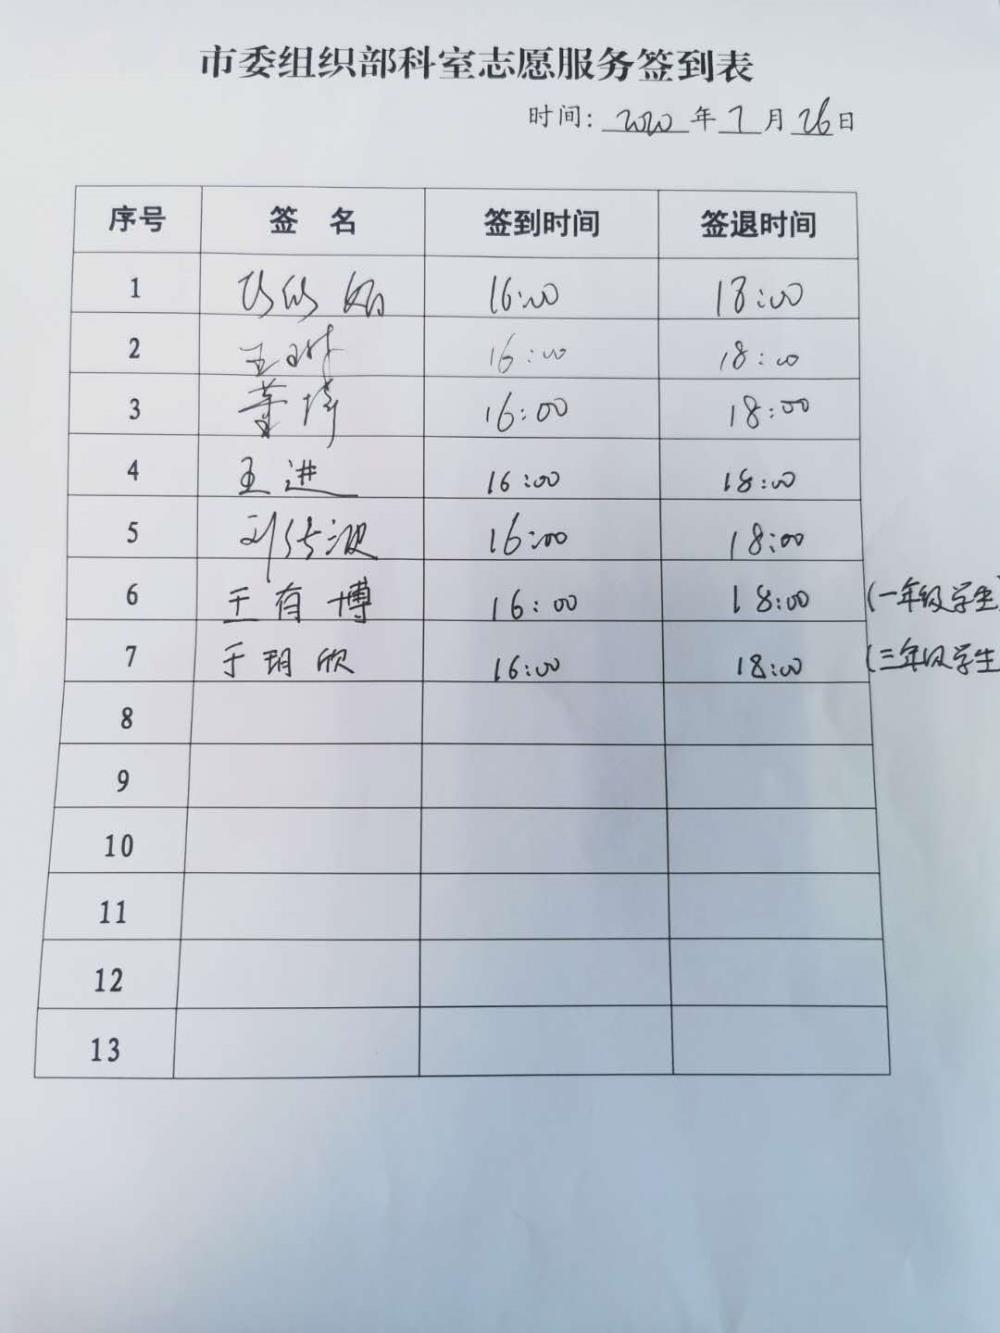 市委组织部科室志愿服务签到表
时间: 2020 年 7 月 26 日
序号 签 名 签到时间 签退时间
1 16:00 18:00
2 王 16:00 18:00
3 董 16:00 18:00
4 王进 16:00 18:00
5 刘传波 16:00 18:00
6 王有博 16:00 18:00 (一年级学生)
7 于玥欣 16:00 18:00 (三年级学生
8
9
10
11
12
13